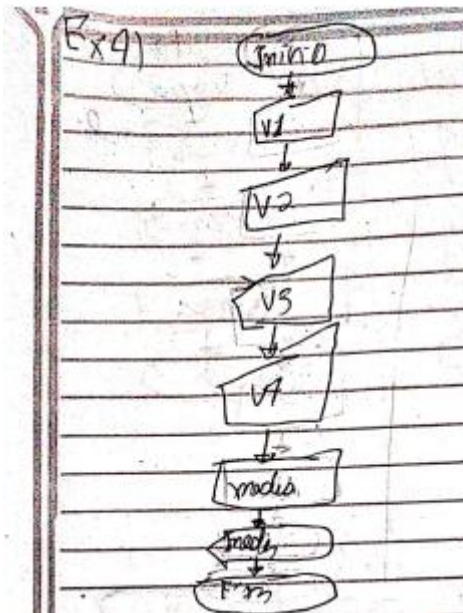 Ex 4)
Início
V1
V2
V3
V4
media
media
Fim